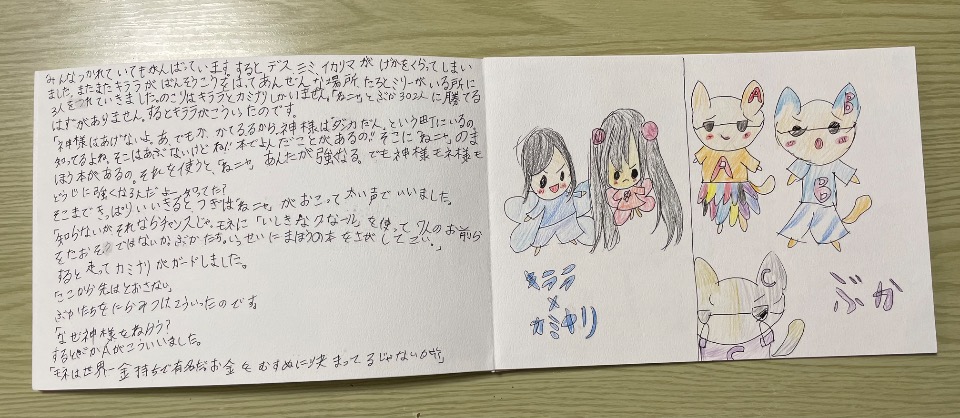 みんなつかれていてもがんばっています。すると、デス ミミ イカリマ が けがをくらってしまい
ました。またまたキララがばんそうこうをはってあんぜんな場所、たろとミリーがいる所に
3人をつれていきました。のこりはキララとカミナリしかいません。「ねニャ」とぶか302人に勝てる
はずがありません。するとキララがこういったのです。
「神様はあげないよ。あ、でもか、かてるから、神様はダンカだん、という町にいるの
知ってるよね。そこはあぶないけどね！本でよんだことがあるの!!そこに「ねニャ」のま
ほう本があるの。それを使うと、「ねニャ」あんたが強くなる。でも神様、モネ様も
どうじに強くなるんだよー知ってた？
そこまできっぱりいいきるとつぎはねニャ がおこって太い声でいいました。
「知らないが、それならチャンスじゃ。モネに「いしきなクナール」を使って7人のお前ら
をたおそ ではないか。ぶかたち、いっせいにまほうの本をさがしてこい。」
すると走ってカミナリがガードしました。
「ここから先はとおさない。
ぶかたちをにらみつけてこういったのです。
「なぜ神様をねらう？
するとぶかAがこういいました。
「モネは世界一金持ちで有名だ。お金をむすぬにり決まってるじゃないか!!」
キララ
×
カミナリ
A
A
B
B
C
C
ぶか